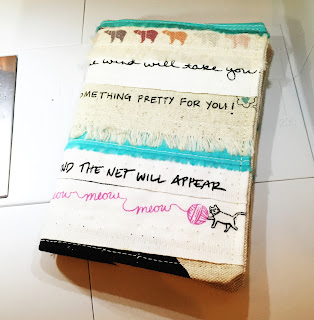 e wind will take you
OMETHING PRETTY FOR YOU!
ND THE NET WILL APPEAR
eow meow meow